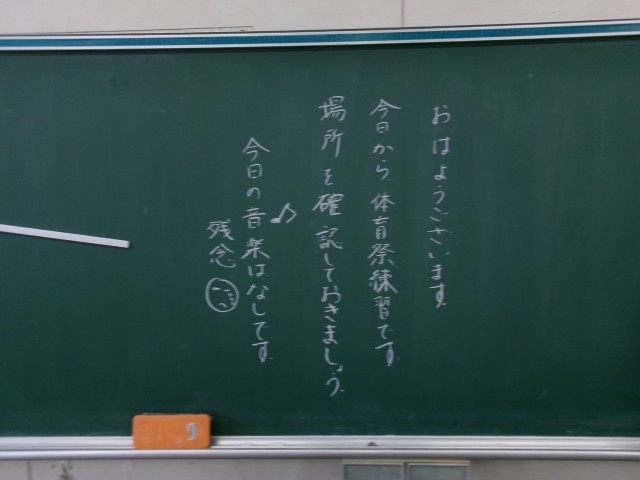 おはようございます。
今日から、体育祭練習です。
場所を確認しておきましょう。
今日の音楽はなしです。
残念